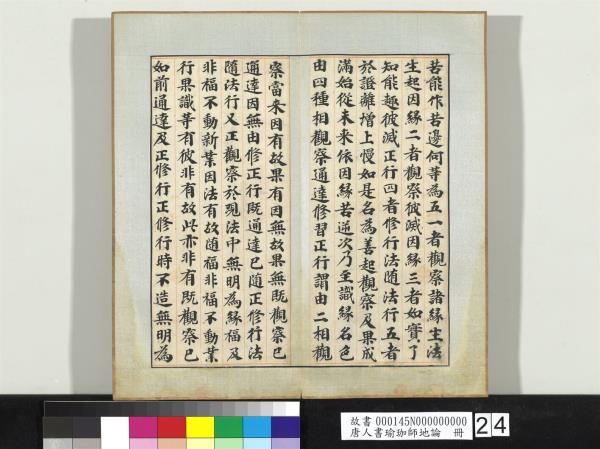 苦能作苦邊何等為五一者觀察諸緣生法
生起因緣二者觀察彼滅因緣三者如實了
知能趣彼滅正行四者修行法隨法行五者
於證離增上慢如是名為善起觀察及果成
滿始從未來依因緣苦逆次乃至識緣名色
由四種相觀察通達修習正行謂由二相觀
察當來因有故果有因無故果無既觀察已
通達因無由修正行既通達已隨正修行法
隨法行又正觀察於現法中無明為緣福及
非福不動新業因法有故隨福非福不動業
行果識等有彼非有故此亦非有既觀察已
如前通達及正修行正修行時不造無明為
故書 000145N000000000
唐人書瑜珈師地論 冊
24